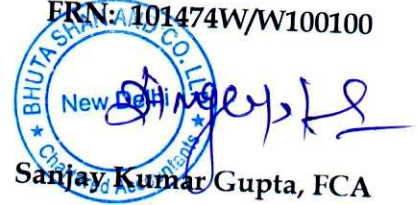 FRN: 101474W/W100100
BHUTA SHAH AND CO. LLP
New Delhi
★ Chartered Accountants ★
Sanjay Kumar Gupta, FCA